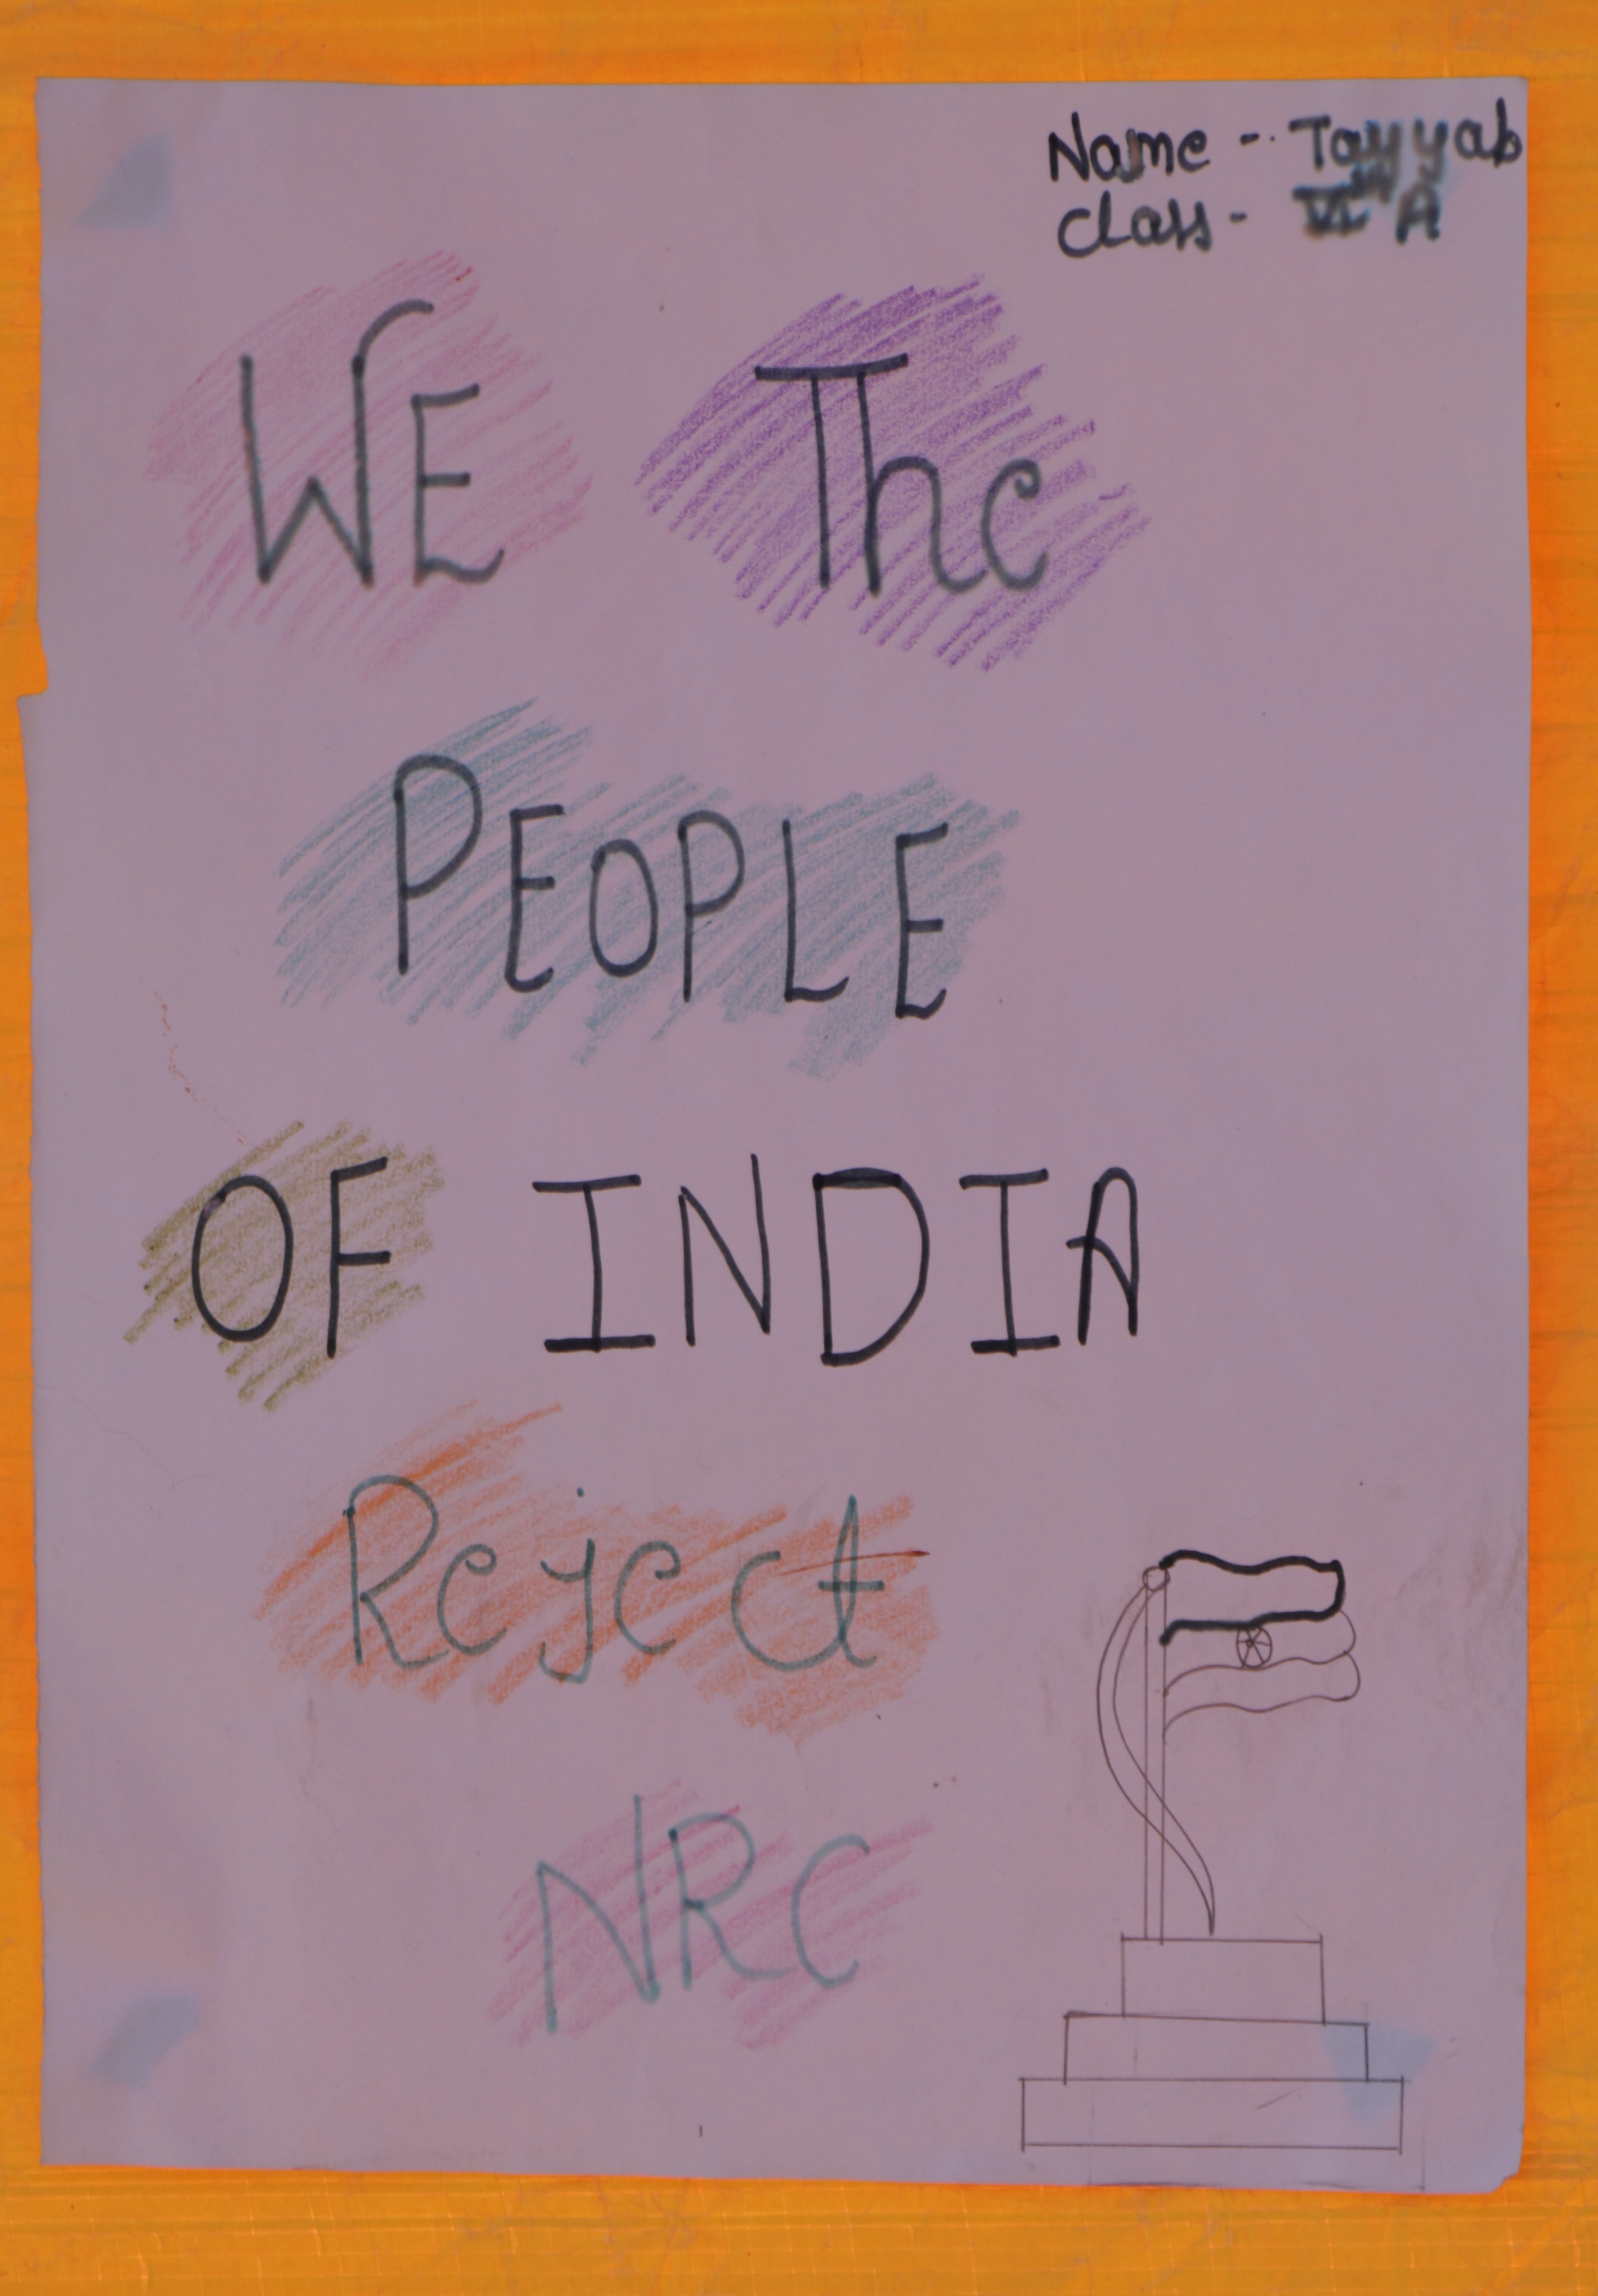 Name - Tayyab
Class - VI A
WE The
PEOPLE
OF INDIA
Reject
NRC